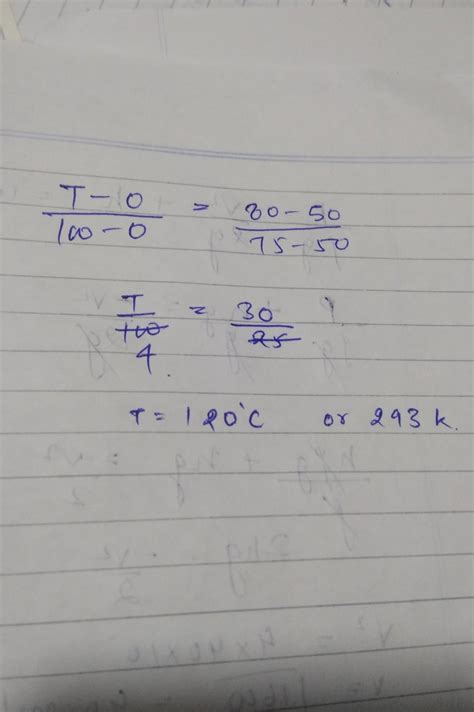 T-0/100-0 = 80-50/75-50
T/100 = 30/25
4
T = 120°C or 293 k.